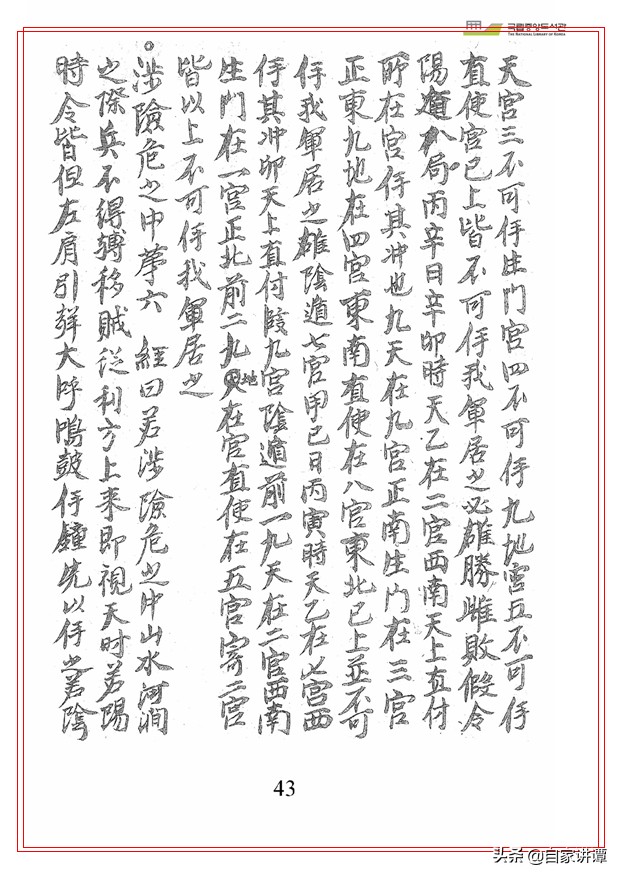 국립중앙도서관
THE NATIONAL LIBRARY OF KOREA
天宮三不可伃生門宮四不可伃九地宮五不可伃
直使宮已上皆不可伃我軍居之必雄勝雌敗假令
陽遁八局丙辛日辛卯時天乙在二宮西南天上直付
所在宮伃其冲也九天在九宮正南生門在三宮
正東九地在四宮東南直使在八宮東北已上並不可
伃我軍居之雄陰遁七宮甲已日丙寅時天乙在七宮西
伃其冲卯天上直付九宮陰遁前一九天在二宮西南
生門在一宮正北前二九地在宮直使在五宮寄二宮
皆以上不可伃我軍居之
。涉險危之中第六 經曰若涉險危之中山水河澗
之際兵不得移賊從利方上来即視天时若陽
時令皆但左肩引大呼鳴鼓伃鐘先以伃之若陰
43
头条 @自家讲谭